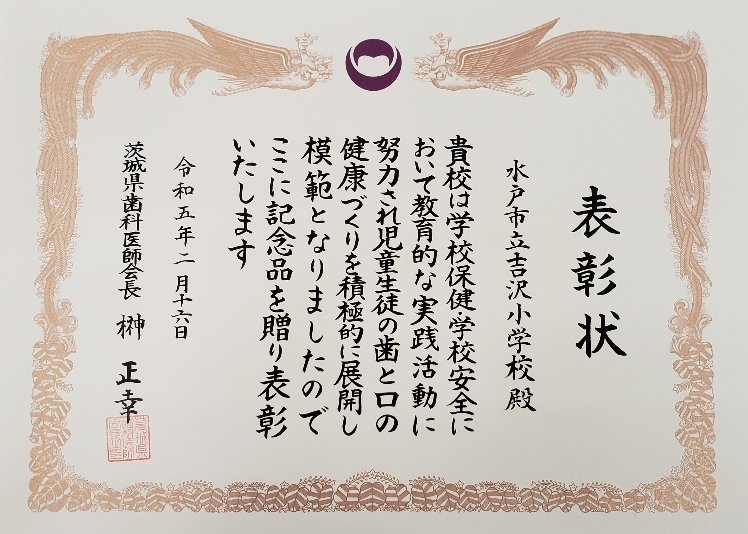 表彰状
水戸市立吉沢小学校殿
貴校は学校保健学校安全に
おいて教育的な実践活動に
努力され児童生徒の歯と口の
健康づくりを積極的に展開し
模範となりましたので
ここに記念品を贈り表彰
いたします
令和五年二月十六日
茨城県歯科医師会長 榊 正幸